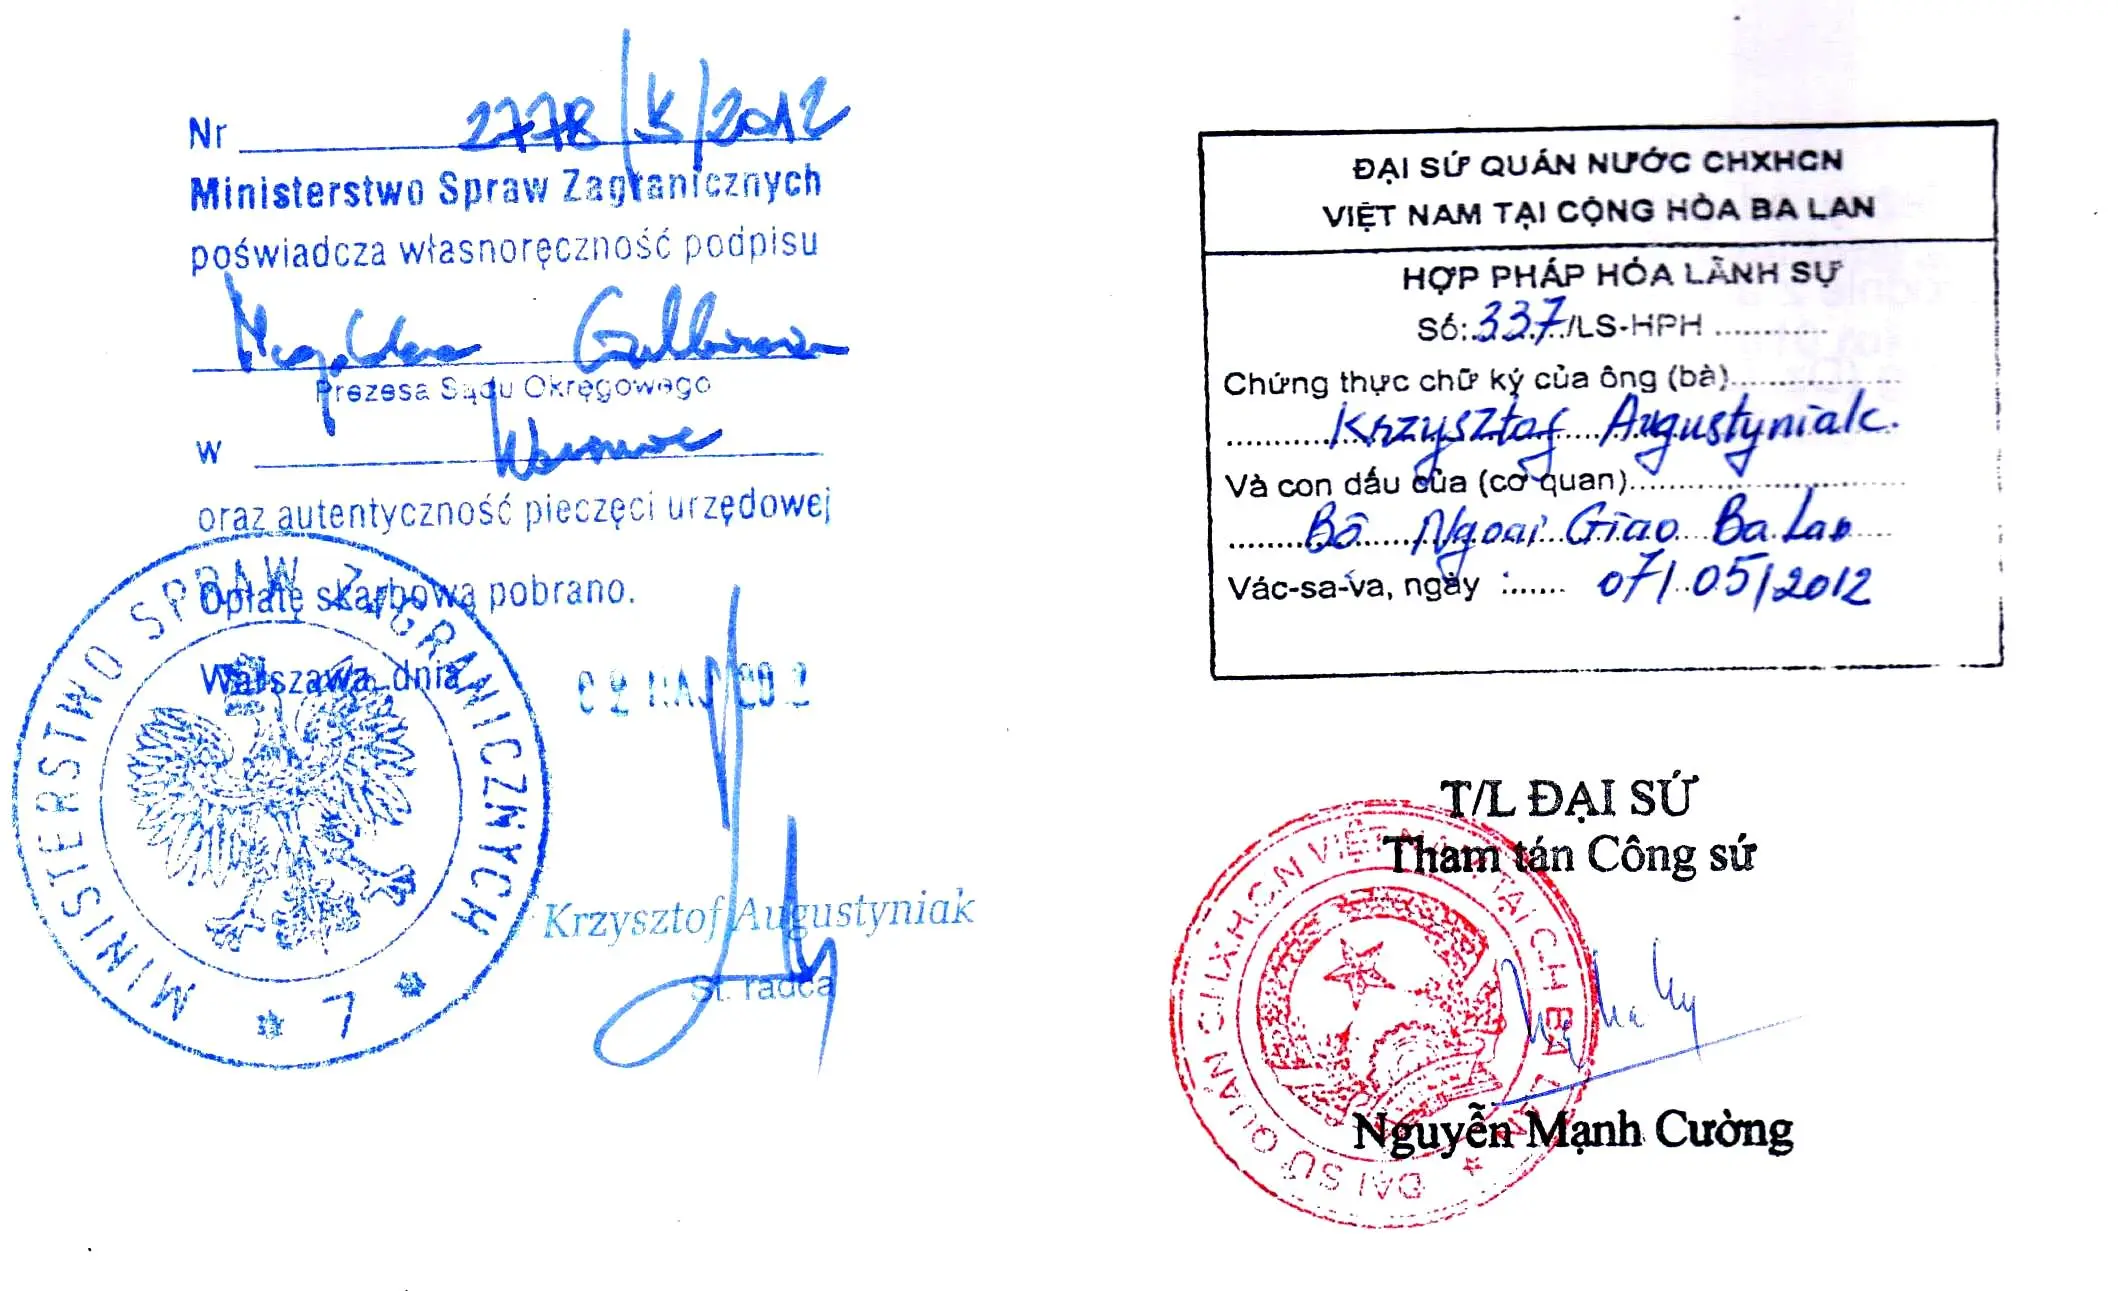 Nr 2778/K/2012
Ministerstwo Spraw Zagranicznych
poświadcza własnoręczność podpisu
Magdalena
Prezesa Sądu Okręgowego
w
oraz autentyczność pieczęci urzędowej
Opłatę skarbową pobrano.
Warszawa, dnia 02 MAJ 2012
MINISTERSTWO SPRAW ZAGRANICZNYCH
Krzysztof Augustyniak
St. radca
ĐẠI SỨ QUÁN NƯỚC CHXHCN
VIỆT NAM TẠI CỘNG HÒA BA LAN
HỢP PHÁP HÓA LÃNH SỰ
Số: 337/LS-HPH ............
Chứng thực chữ ký của ông (bà)..................
Krzysztof Augustyniak.
Và con dấu của (cơ quan)..................
Bộ Ngoại Giao Ba Lan
Vác-sa-va, ngày :...... 07/05/2012
T/L ĐẠI SỨ
Tham tán Công sứ
ĐẠI SỨ QUÁN CHXHCN VIỆT NAM TẠI CH BA LAN
Nguyễn Mạnh Cường